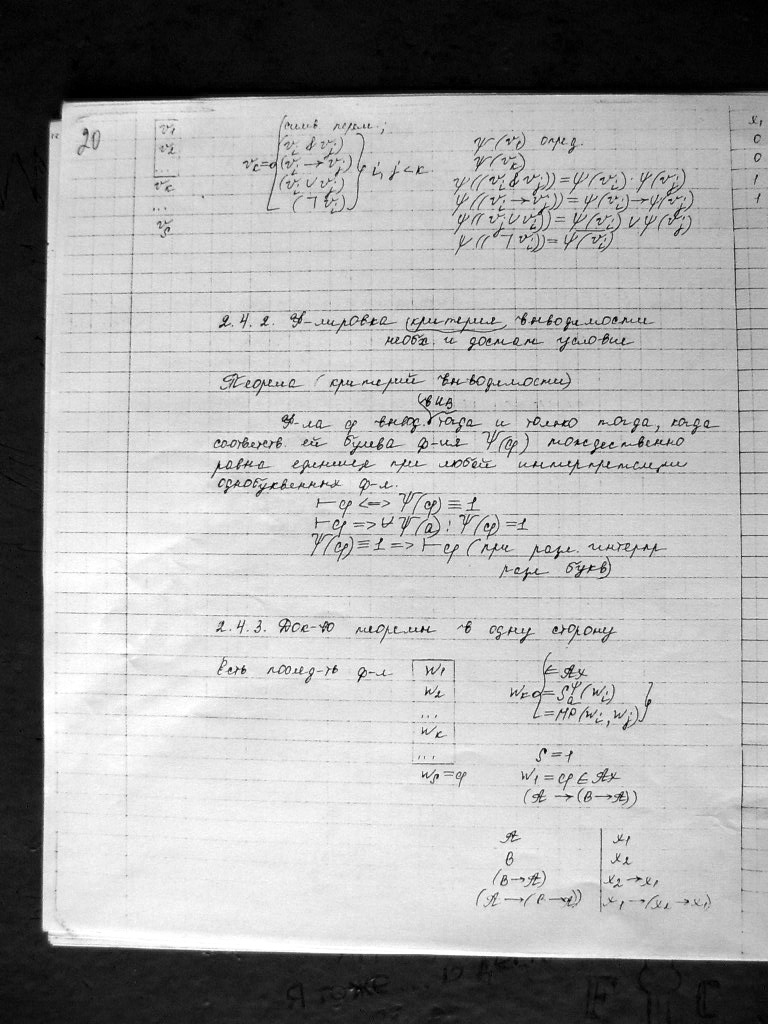 20
v₁
v₂
...
vₖ
...
vₛ
символ перем.;
(vᵢ & vⱼ)
vₖ = (vᵢ → vⱼ) i, j < k.
(vᵢ ∨ vⱼ)
(¬ vᵢ)
ψ(vᵢ) опред.
ψ(vₖ)
ψ((vᵢ & vⱼ)) = ψ(vᵢ) · ψ(vⱼ)
ψ((vᵢ → vⱼ)) = ψ(vᵢ) → ψ(vⱼ)
ψ((vⱼ ∨ vᵢ)) = ψ(vᵢ) ∨ ψ(vⱼ)
ψ((¬ vᵢ)) = ψ(vᵢ)
x₁
0
0
1
1
2.4.2. Ф-лировка критерия выводимости
необх. и достат условие
Теорема (критерий выводимости)
в ИВ
Ф-ла φ вывод. тогда и только тогда, когда
соответств. ей булева ф-ия Ψ(φ) тождественно
равна единице при любой интерпретации
однобуквенных ф-л.
⊢ φ <=> Ψ(φ) ≡ 1
⊢ φ => ∀ Ψ(a) : Ψ(φ) = 1
Ψ(φ) ≡ 1 => ⊢ φ (при разл. интерпр
разл букв)
2.4.3. Док-во теоремы в одну сторону
Есть послед-ть ф-л
w₁
w₂
...
wₖ
...
wₛ = φ
∈ Ax
wₖ = Sₐ^Ψ(wᵢ)
= MP(wᵢ, wⱼ)
S = 1
w₁ = φ ∈ Ax
(A → (B → A))
A | x₁
B | x₂
(B → A) | x₂ → x₁
(A → (B → A)) | x₁ → (x₂ → x₁)